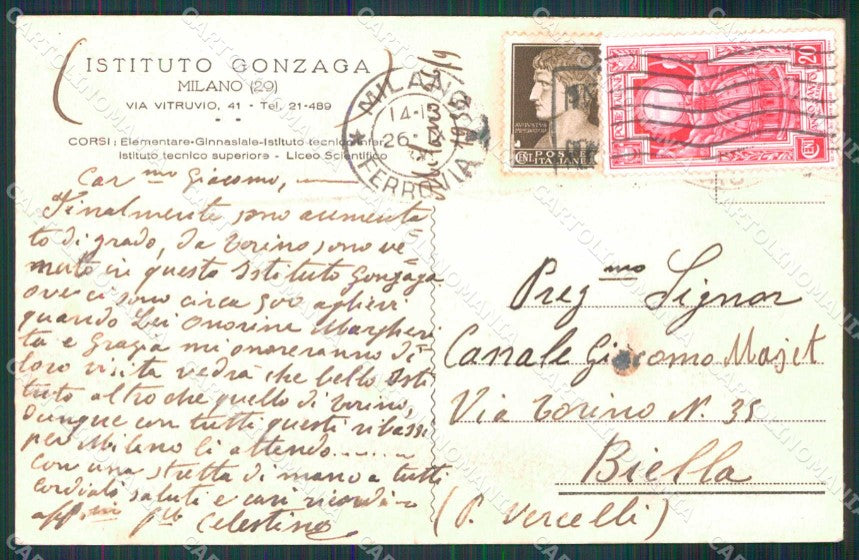 ISTITUTO GONZAGA
MILANO (29)
VIA VITRUVIO, 41 - Tel. 21-489
CORSI: Elementare-Ginnasiale-Istituto tecnico infer.
Istituto tecnico superiore - Liceo Scientifico
MILANO
FERROVIA
POSTE
ITALIANE
20
CENT
Car mo Giacomo,
Finalmente sono aumenta
to di grado, da Torino sono ve=
nuto in questo Istituto Gonzaga
ove ci sono circa 500 allievi
quando Lei Onorine Margheri
ta e Grazia mi onoreranno di
loro visita vedrà che bello Isti
tuto altro che quello di Torino,
Dunque con tutti questi ribassi
per Milano li attendo........
con una stretta di mano a tutti
cordiali saluti e cari ricordi
aff.m Celestino
Preg mo Signor
Canale Giacomo Majet
Via Torino N. 35
Biella
(P. Vercelli)
CARTOLINOMANIA